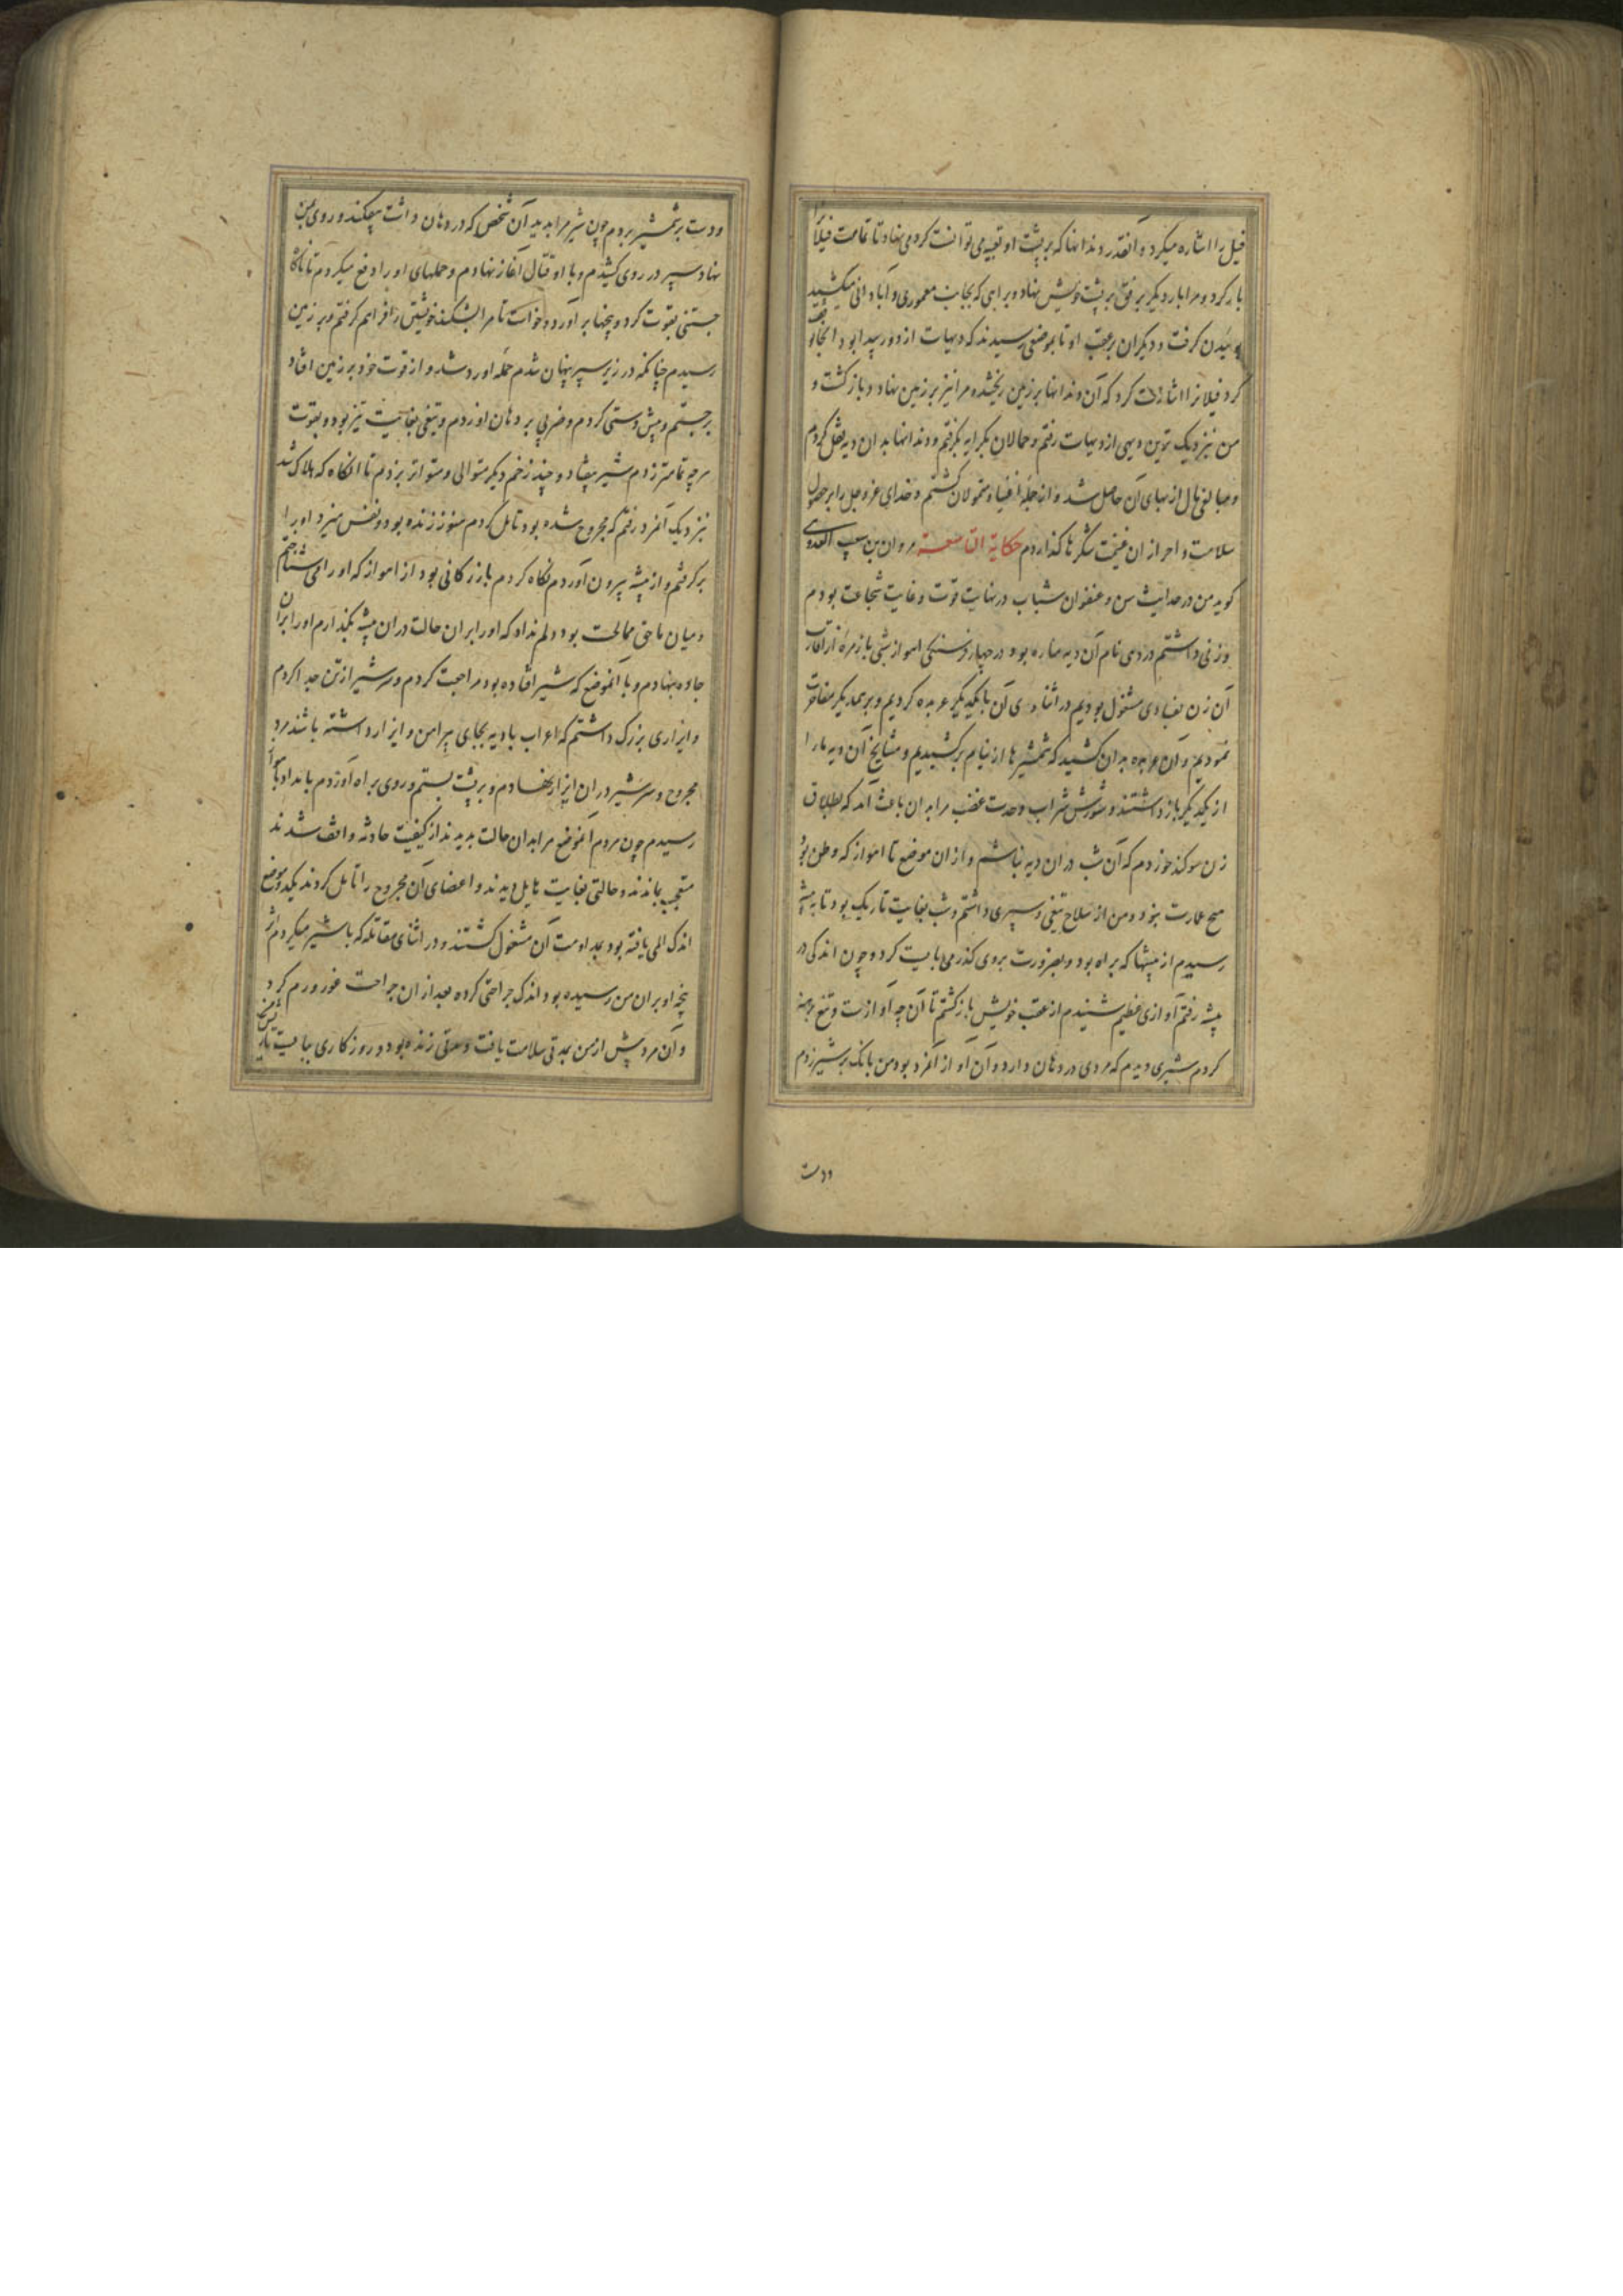 فیل را اشاره میکرد و آنقدر دندانها که بر پشت او تعبیه می توانست کرد می نهاد تا تمامت فیلانرا
بار کرد و مرا بار دیگر برفق بر پشت خویش نهاد و براهی که بجانب معموری و آبادانی میکشید
گرفت و دیگران بر عقب او تا بموضعی رسیدند که دیهات از دور پیدا بود و آنجا توقف
کرد فیلانرا اشارت کرد که آن دندانها بر زمین ریختند و مرا نیز بر زمین نهاد و باز گشت و
من نزدیک ترین دیهی از دیهات رفتم و حمالان بکرایه بگرفتم و دندانها بدان دیه نقل کردم
و مبالغی مال از بهای آن حاصل شد و از جمله اغنیا و متمولان گشتم و خدای عز و جل را بر حصول
سلامت و احراز آن غنیمت شکرها گذاردم حکایة التاسعة مروان بن شعیب العدوی
گوید من در حداثت سن و عنفوان شباب در نهایت قوت و غایت شجاعت بودم
و زنی داشتم در دهی نام آن دیه مناره بود در چهار فرسنگی اهواز شبی با زمره از اقارب
آن زن بفسادی مشغول بودیم در اثنای آن با یکدیگر عربده کردیم و بر یکدیگر مفاخرت
نمودیم و آن عربده بدان کشید که شمشیرها از نیام برکشیدیم و مشایخ آن دیه ما را
از یکدیگر باز داشتند و شورش شراب و حدت غضب مرا بدان باعث آمد که بطلاق
زن سوگند خوردم که آن شب در آن دیه نباشم و از آن موضع تا اهواز که وطن بود
هیچ عمارت نبود و من از سلاح تیغی و سپری داشتم و شب بغایت تاریک بود تا به بیشه
رسیدم از بیشها که براه بود و بضرورت بر وی گذر می بایست کرد و چون اندکی در
بیشه رفتم آوازی عظیم شنیدم از عقب خویش باز گشتم تا آن چه آوازست و تیغ برهنه
کردم شیری دیدم که مردی در دهان دارد و آن آواز آنمرد بود من بانگ بر شیر زدم
ودست
ودست بر شمشیر بردم چون شیر مرا بدید آن شخص که در دهان داشت بیفکند و روی بمن
نهاد سپر در روی کشیدم و با او قتال آغاز نهادم و حملهای او را دفع میکردم تا ناگاه
جستنی بقوت کرد و پنجها برآورد و خواست تا مرا بشکند خویشتن را فراهم گرفتم و بر زمین
رسیدم چنانکه در زیر سپر پنهان شدم حمله او رد شد و از قوت خود بر زمین افتاد
برجستم و پیش دستی کردم و ضربی بر دهان او زدم و تیغی بغایت تیز بود و بقوت
هر چه تمامتر زدم شیر بیفتاد و چند زخم دیگر متوالی و متواتر بزدم تا آنگاه که هلاک شد
نزدیک آنمرد رفتم که مجروح شده بود تامل کردم هنوز زنده بود و نفس میزد او را
برگرفتم و از بیشه بیرون آوردم نگاه کردم بازرگانی بود از اهواز که او را می شناختم
و میان ما حق ممالحت بود دلم نداد که او را بر آن حالت در آن بیشه بگذارم او را بر آن
جاده بنهادم و با آنموضع که شیر افتاده بود مراجعت کردم و سر شیر از تن جدا کردم
و ایزاری بزرگ داشتم که اعراب بادیه بجای پیراهن و ایزار داشته باشند مرد
مجروح و سر شیر در آن ایزار نهادم و بر پشت بستم و روی براه آوردم بامداد
رسیدم چون مردم آنموضع مرا بدان حالت بدیدند از کیفیت حادثه واقف شدند
متعجب بماندند و حالتی بغایت هایل دیدند و اعضای آن مجروح را تامل کردند یکدو موضع
اندک المی یافته بود بمداومت آن مشغول گشتند و در اثنای مقاتله که با شیر میکردم اثر
پنجه او بر ران من رسیده بود و اندک جراحتی کرده بعد از آن جراحت غور و ورم کرد
و آن مرد پیش از من بمدتی سلامت یافت و مدتی زنده بود و روزگاری